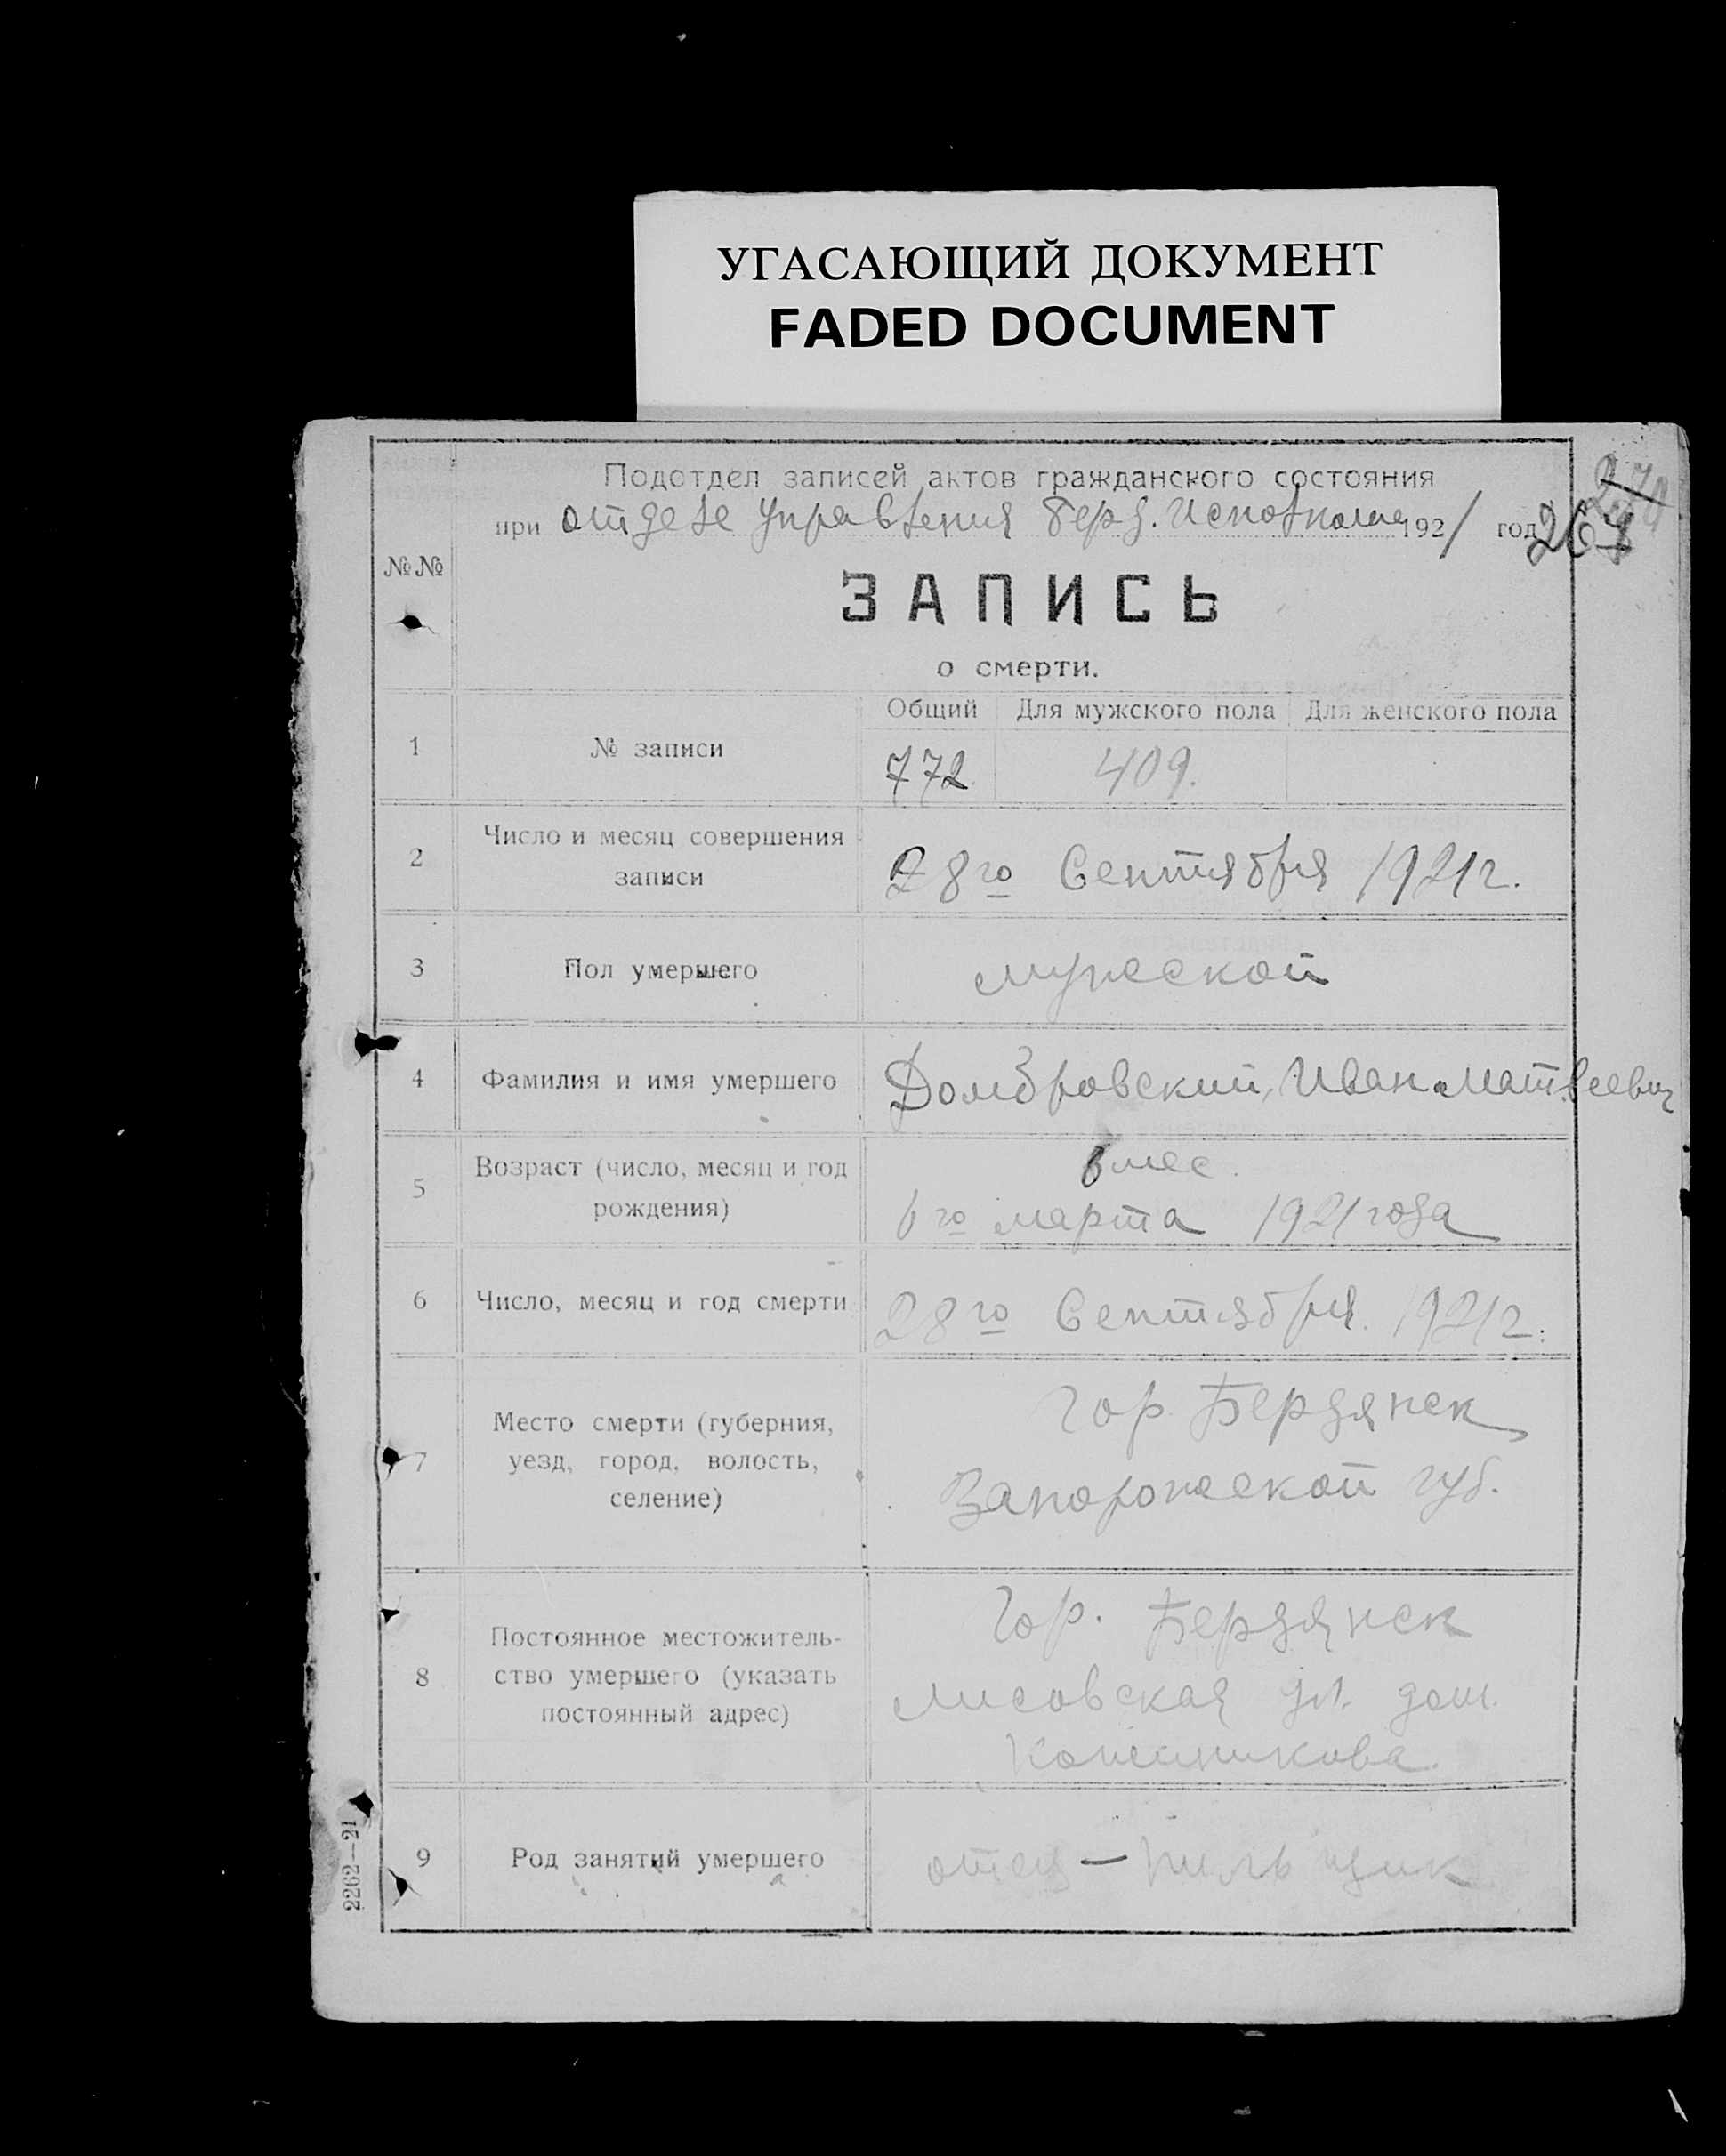 УГАСАЮЩИЙ ДОКУМЕНТ
FADED DOCUMENT
Подотдел записей актов гражданского состояния
при отделе Управления Берд. Исполкома 1921 год
267
№№
ЗАПИСЬ
о смерти.
Общий Для мужского пола Для женского пола
1 № записи 772 409.
2 Число и месяц совершения
записи 28го Сентября 1921г.
3 Пол умершего мужской
4 Фамилия и имя умершего Домбровский, Иван Матвеевич
5 Возраст (число, месяц и год
рождения)
6 мес.
6го марта 1921 года
6 Число, месяц и год смерти 28го Сентября 1921г.
7 Место смерти (губерния,
уезд, город, волость,
селение)
Гор. Бердянск
Запорожской губ.
8 Постоянное местожитель-
ство умершего (указать
постоянный адрес)
Гор. Бердянск
Лисовская ул. дом
9 Род занятий умершего отец — пильщик
2262—21